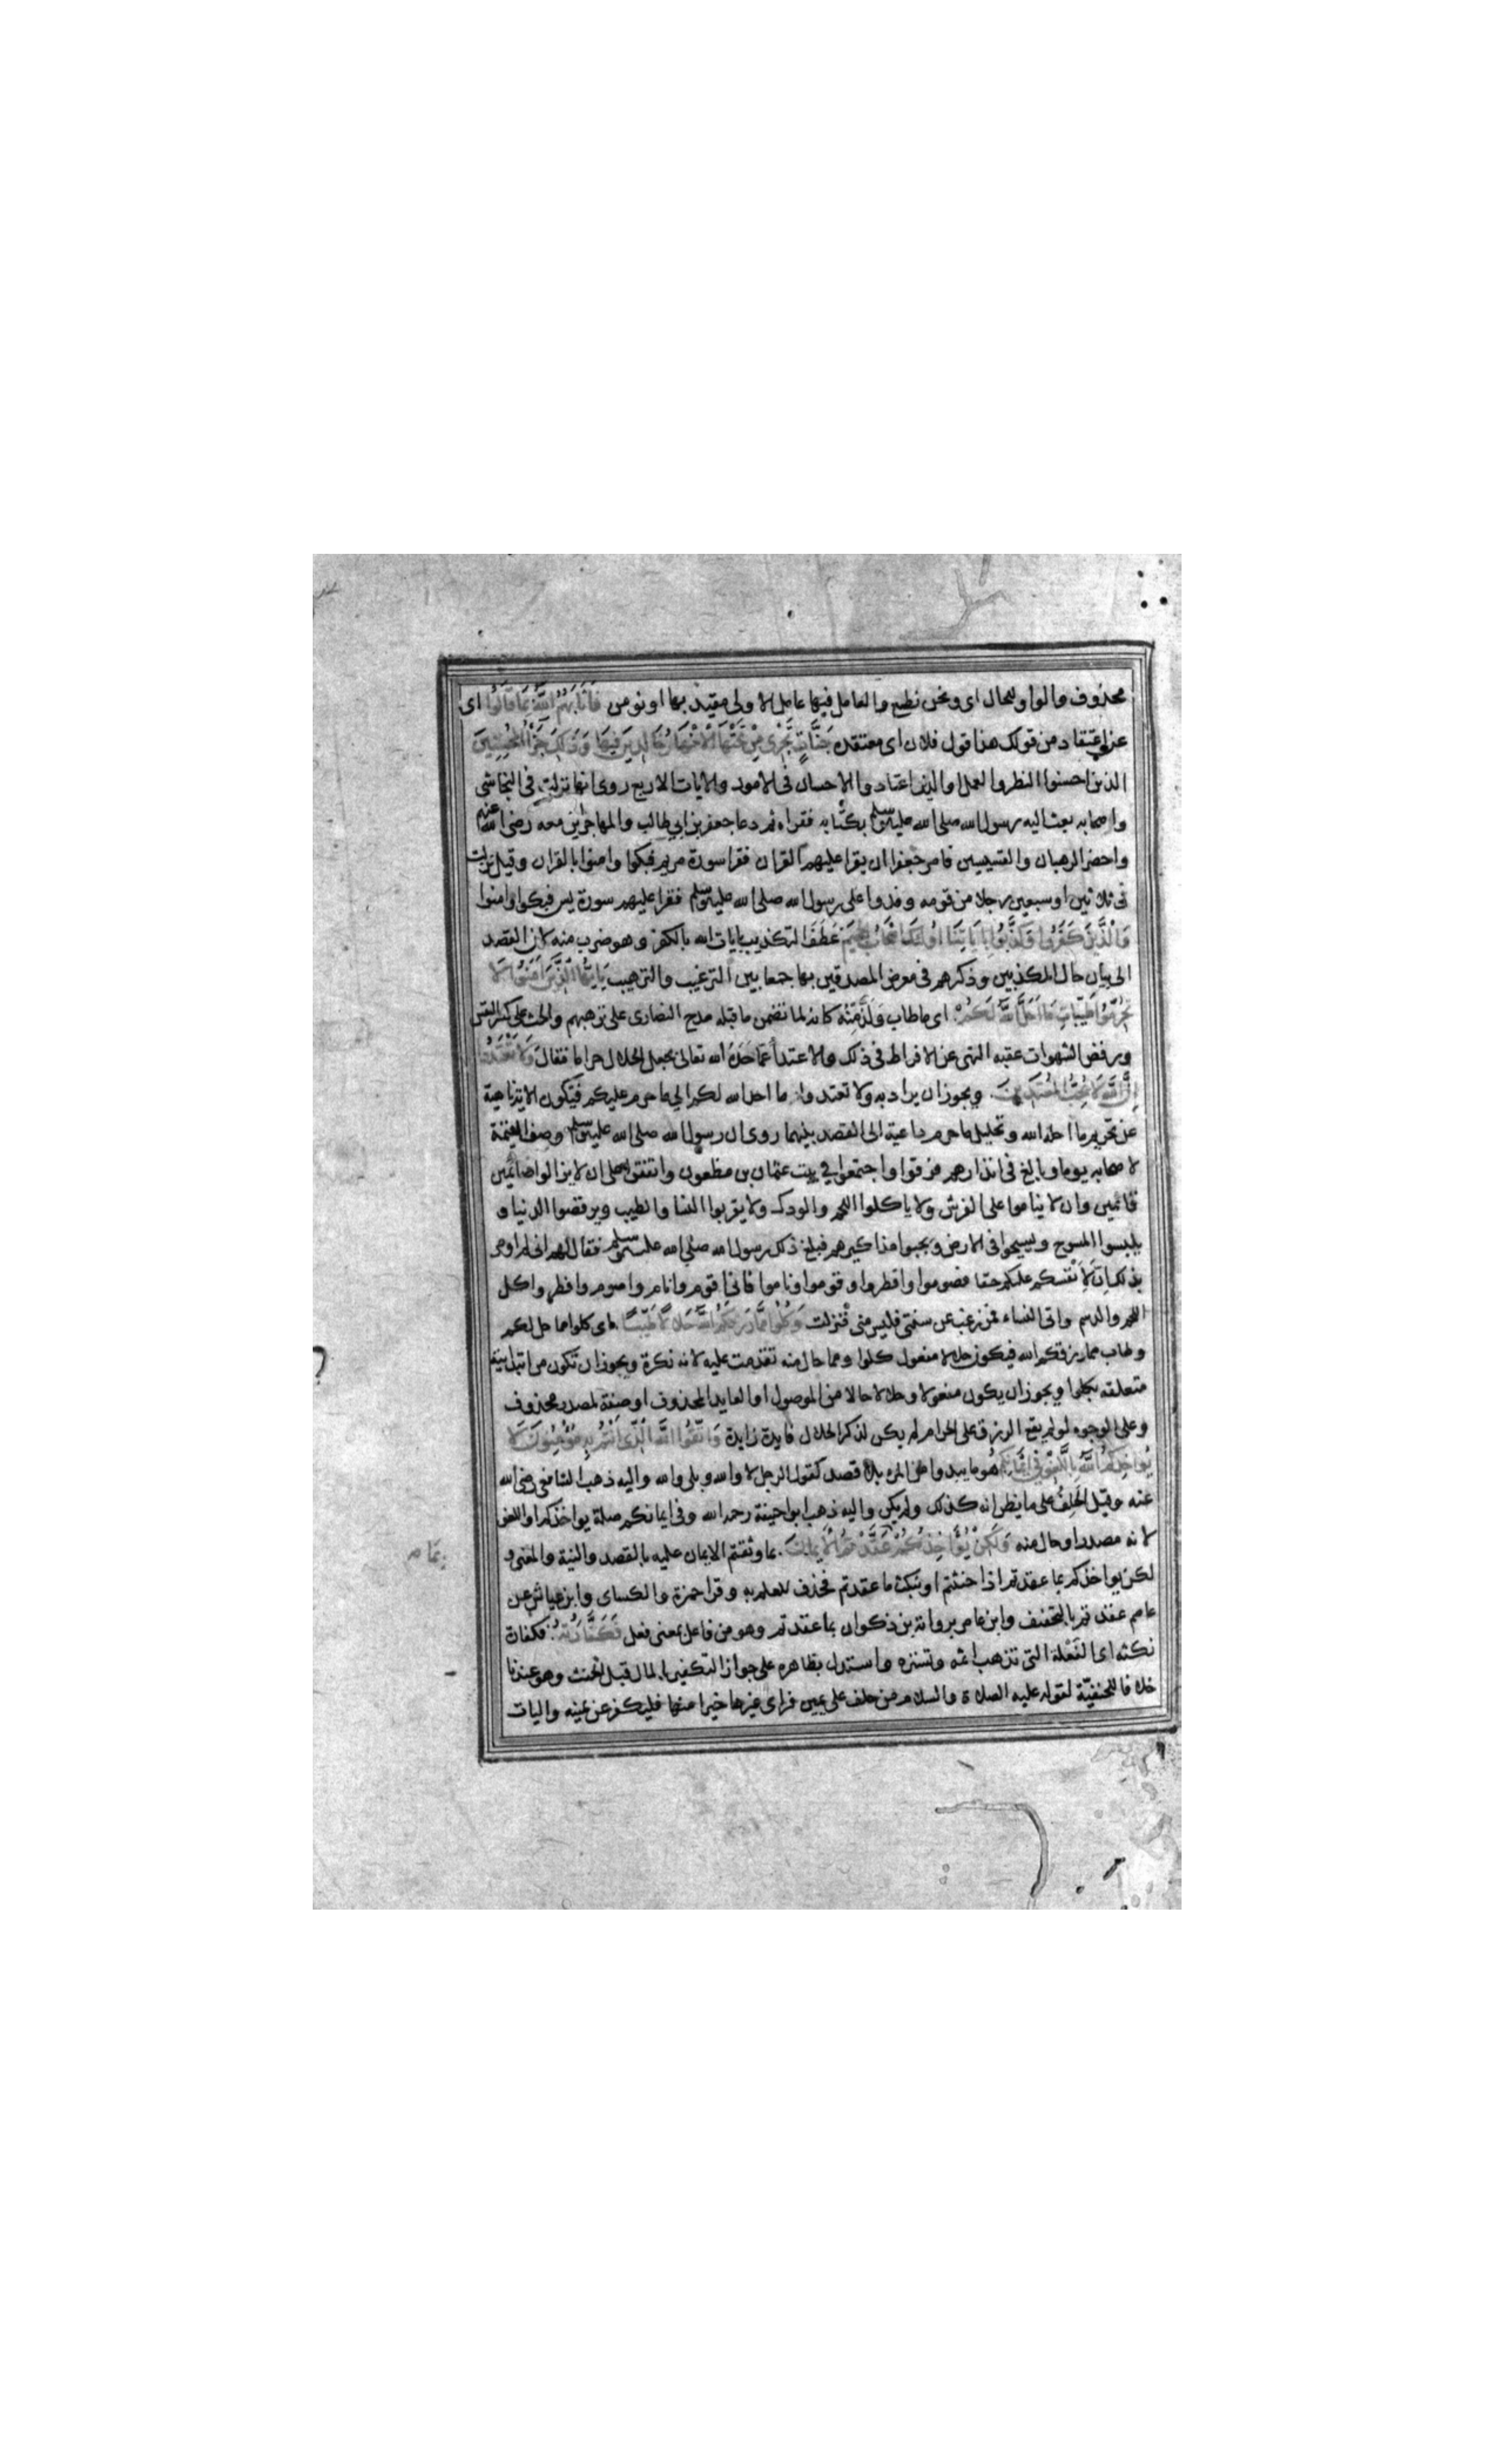 محذوف والواو للحال اى ونحن نطمع والعامل فيها عامل الاولى مقيد بها او نومن فَاَثَابَهُمُ اللّٰهُ بِمَا قَالُوا اى
عن اعتقاد من قولك هذا قول فلان اى معتقده جَنَّاتٍ تَجْرِى مِنْ تَحْتِهَا الْاَنْهَارُ خَالِدِينَ فِيهَا وَذٰلِكَ جَزَاۤءُ الْمُحْسِنِينَ
الذين احسنوا النظر والعمل والذين اعتادوا الاحسان فى الامور والايات الاربع روى انها نزلت فى النجاشى
واصحابه بعث اليه رسول الله صلى الله عليه وسلم بكتابه فقراه ثم دعا جعفر بن ابي طالب والمهاجرين معه رضى الله عنهم
واحضر الرهبان والقسيسين فامر جعفرا ان يقرا عليهم القران فقرا سورة مريم فبكوا وامنوا بالقران وقيل نزلت
فى ثلاثين او سبعين رجلا من قومه وفدوا على رسول الله صلى الله عليه وسلم فقرا عليهم سورة يس فبكوا وامنوا
وَالَّذِينَ كَفَرُوا وَكَذَّبُوا بِاٰيَاتِنَا اُولٰئِكَ اَصْحَابُ الْجَحِيمِ عَطَفَ التكذيب بايات الله بالكفر وهو ضرب منه لان القصد
الى بيان حال المكذبين وذكرهم فى معرض المصدقين بها جمعا بين الترغيب والترهيب يَا اَيُّهَا الَّذِينَ اٰمَنُوا لَا
تُحَرِّمُوا طَيِّبَاتِ مَا اَحَلَّ اللّٰهُ لَكُمْ اى ماطاب وَلَذَّ مِنْه كانه لما تضمن ما قبله مدح النصارى على ترهبهم والحث على كسر النفس
ورفض الشهوات عقبه النهى عن الافراط فى ذلك والاعتداء عما حَدَّ الله تعالى بجعل الحلال حراما فقال وَلَا تَعْتَدُوا
اِنَّ اللّٰهَ لَا يُحِبُّ الْمُعْتَدِينَ ويجوز ان يراد به ولا تعتدوا ما احل الله لكم الي ما حرم عليكم فتكون الاية ناهية
عن تحريم ما احل الله وتحليل ما حرم داعية الى القصد بينهما روى ان رسول الله صلى الله عليه وسلم وصف القيمة
لاصحابه يوما وبالغ فى انذارهم فرقوا واجتمعوا في بيت عثمان بن مظعون واتفقوا على ان لا يزالوا صائمين
قائمين وان لا يناموا على الفرش ولا ياكلوا اللحم والودك ولا يقربوا النسا والطيب ويرفضوا الدنيا و
يلبسوا المسوح ويسيحوا فى الارض ويجبوا مذاكيرهم فبلغ ذلك رسول الله صلى الله عليه وسلم فقال لهم انى لم اومر
بذلك اِنَّ لِاَنْفسكم عليكم حقا فصوموا وافطروا وقوموا وناموا فانى اقوم وانام واصوم وافطر واكل
اللحم والدسم واتى النساء فمن رغب عن سنتى فليس منى فنزلت وَكُلُوا مِمَّا رَزَقَكُمُ اللّٰهُ حَلَالًا طَيِّبًا اى كلوا ما حل لكم
وطاب مما رزقكم الله فيكون حلالا مفعول كلوا ومما حال منه تقدمت عليه لانه نكرة ويجوز ان تكون من ابتدائية
متعلقه بكلوا ويجوز ان يكون مفعولا وحلالا حالا من الموصول او العايد المحذوف او صفة لمصدر محذوف
وعلى الوجوه لو لم يقع الرزق على الحرام لم يكن لذكر الحلال فايدة زايدة وَاتَّقُوا اللّٰهَ الَّذِى اَنْتُمْ بِهِ مُؤْمِنُونَ لَا
يُوَاخِذُكُمُ اللّٰهُ بِاللَّغْوِ فِى اَيْمَانِكُمْ هُو ما يبدوا من المرء بلا قصد كقول الرجل لا والله وبلى والله واليه ذهب الشافعى رضى الله
عنه وقيل الحَلِفُ على ما يظن انه كذلك ولم يكن واليه ذهب ابو حنيفة رحمه الله وفى ايمانكم صلة يواخذكم او اللغو
لانه مصدر او حال منه وَلٰكِنْ يُؤَاخِذُكُمْ بِمَا عَقَّدْتُمُ الْاَيْمَانَ بما وثقتم الايمان عليه بالقصد والنية والمعنى و
لكن يواخذكم بما عقدتم اذا حنثتم او بنكث ما عقدتم فحذف للعلم به وقرا حمزة والكساى وابن عياش عن
عاصم عقدتم بالتخفيف وابن عامر برواية بن ذكوان بما عقدتم وهو من فاعل بمعنى فعل فَكَفَّارَتُهُ فكفارة
نكثه اى الفَعْلة التى تذهب اثمه وتستره واستدل بظاهره على جواز التكفير بالمال قبل الحنث وهو عندنا
خلافا للحنفيّة لقوله عليه الصلاة والسلام من حلف على يمين فراى غيرها خيرا منها فليكفر عن يمينه وليات